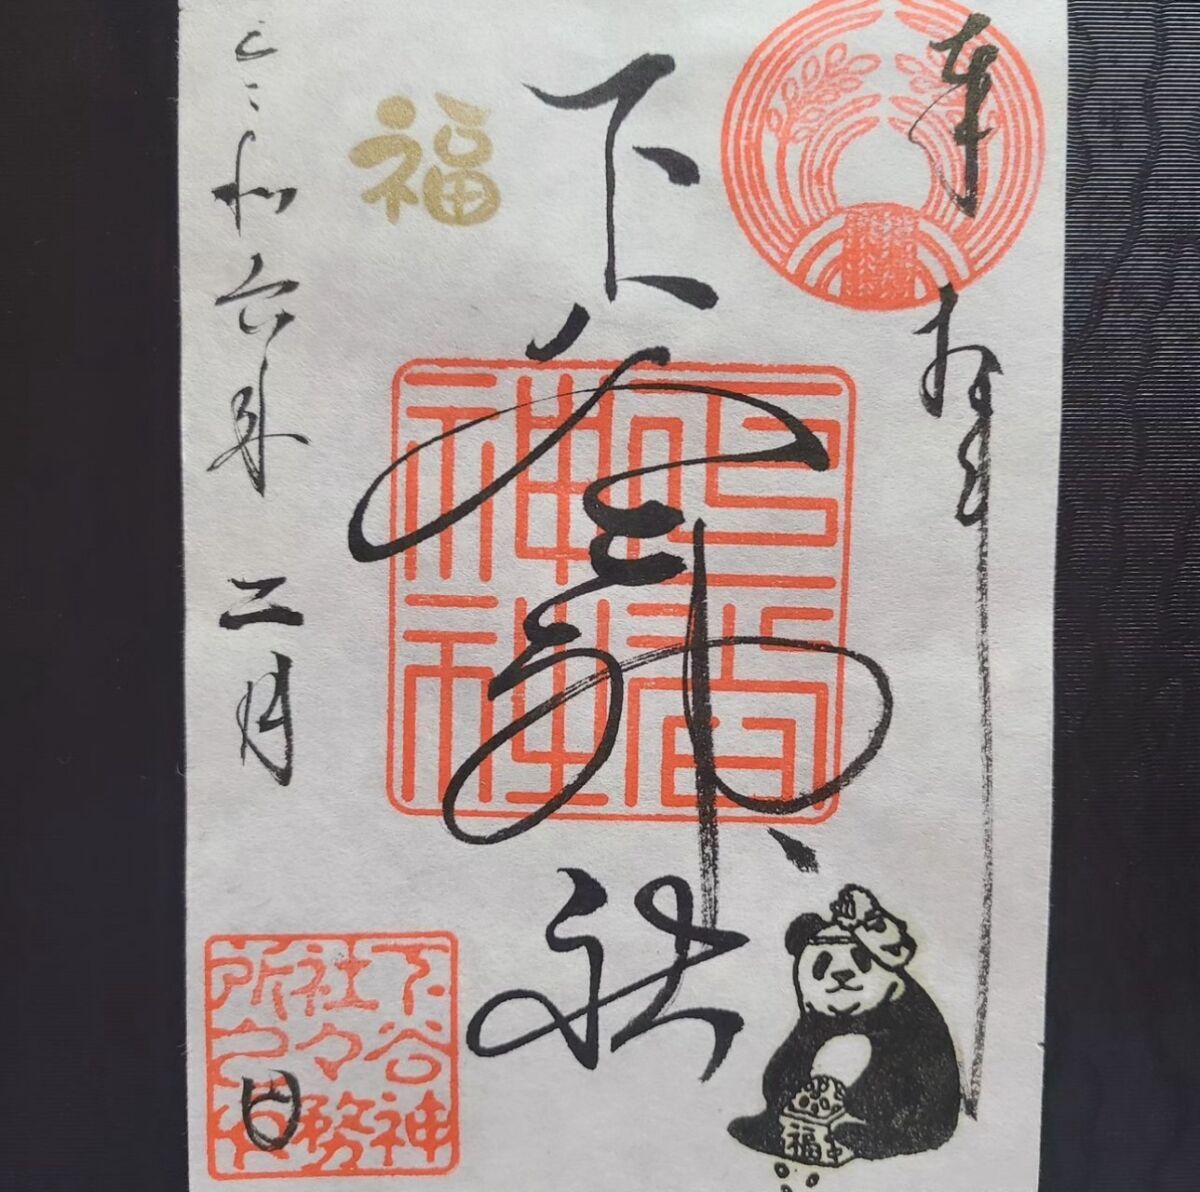 奉拝
下谷神社
下谷神社
福
令和六年二月
日
下谷神
社々務
所之印
福